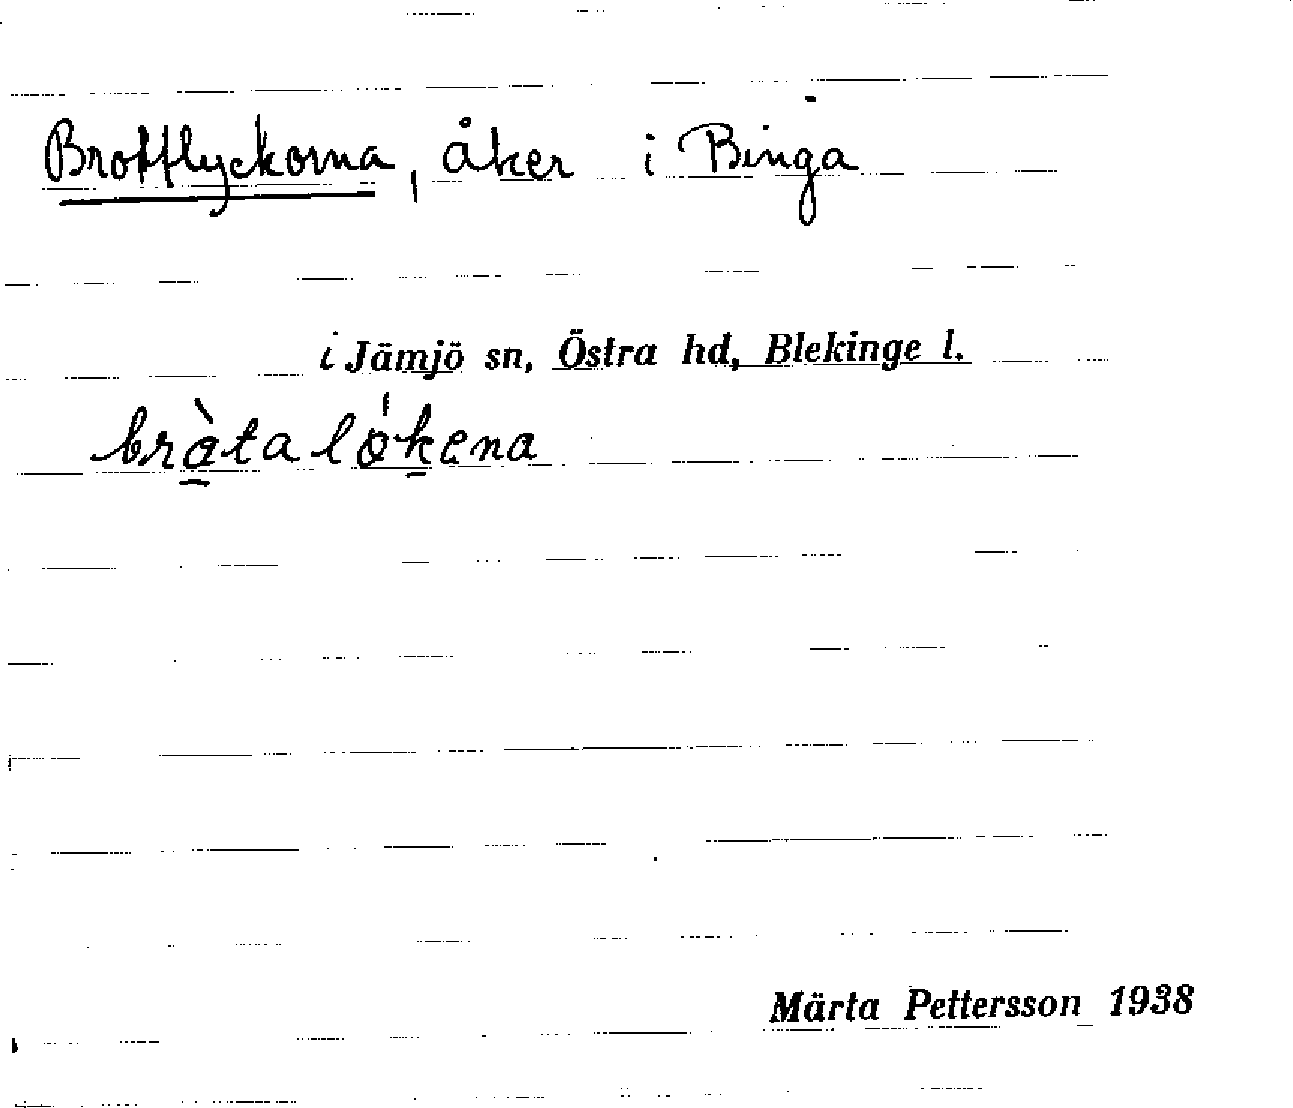 Brottlyckorna, åker i Binga
i Jämjö sn, Östra hd, Blekinge l.
bràta lókena
Märta Pettersson 1938